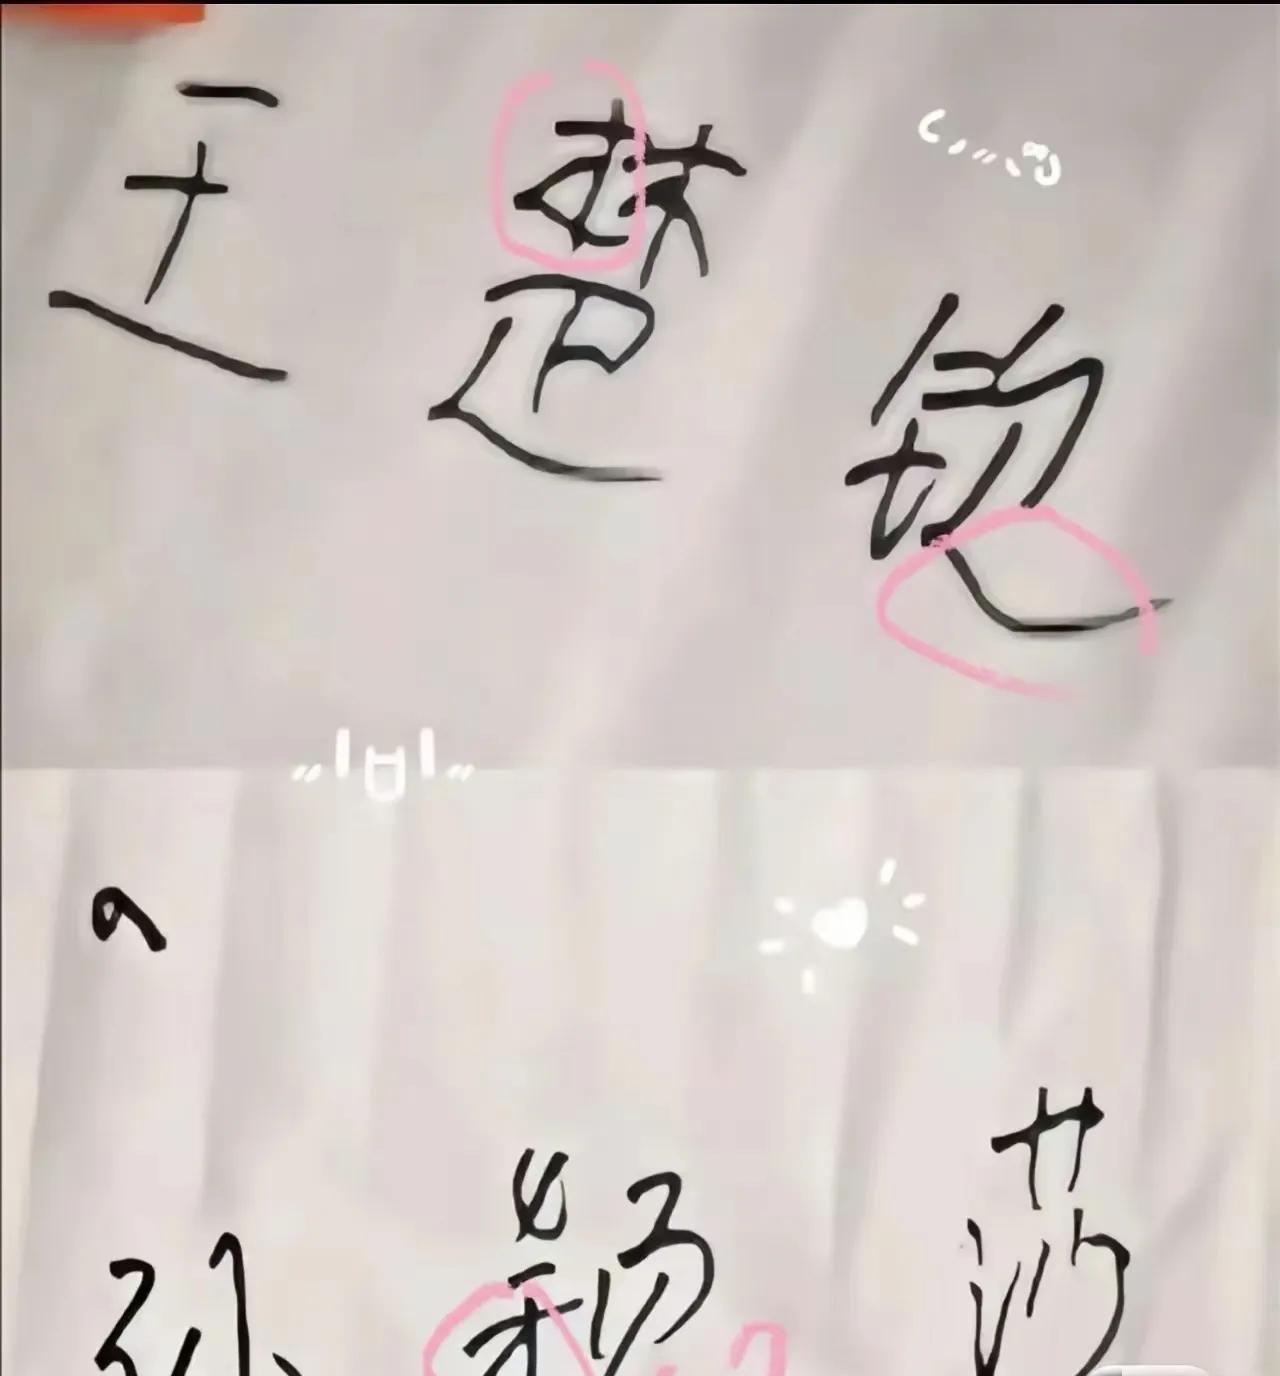 王楚钦
孙颖莎